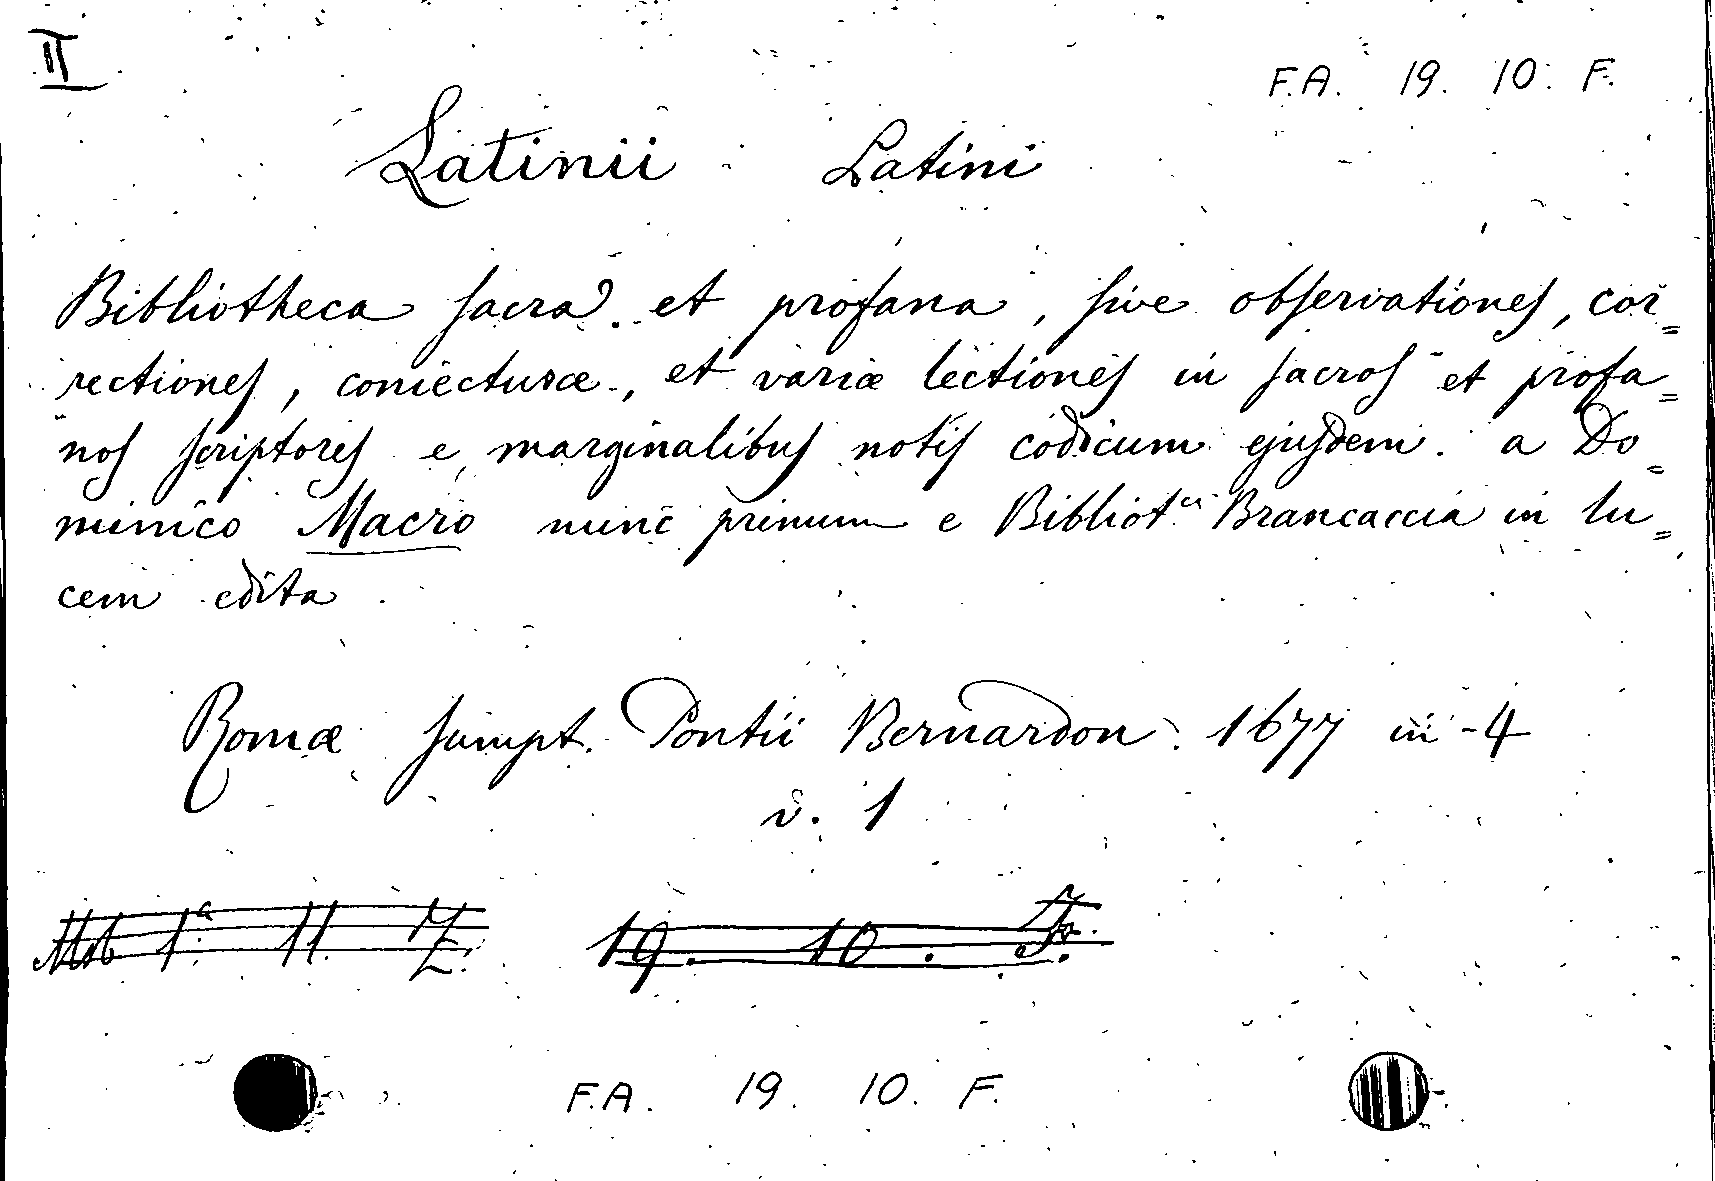 II
F.A. 19. 10. F.
Latinii Latini
Bibliotheca sacra et profana, sive observationes, cor=
rectiones, coniecturæ, et variæ lectiones in sacros et profa=
nos scriptores e marginalibus notis codicum ejusdem. a Do=
minico Macro nunc primum e Bibliot.ca Brancaccia in lu=
cem edita.
Romæ sumpt. Pontii Bernardon. 1677 in-4
v. 1
19. 10. F.
F.A. 19. 10. F.